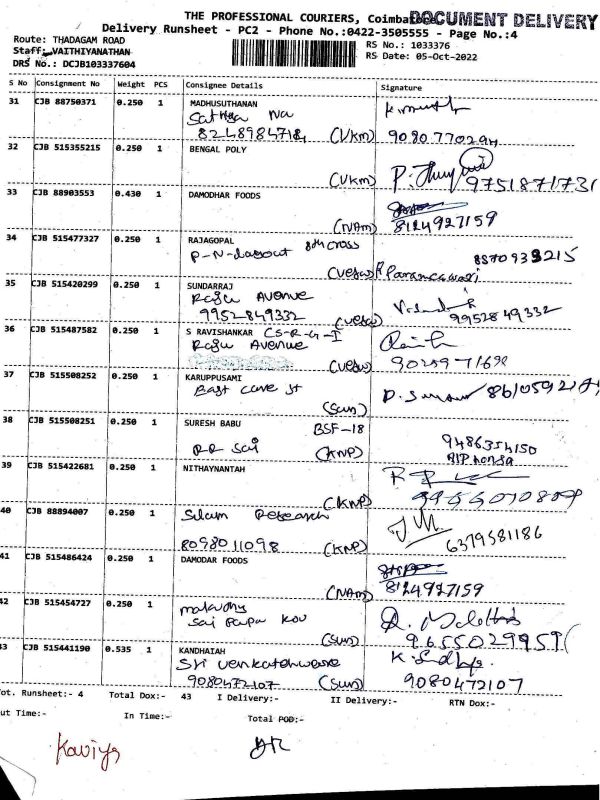 THE PROFESSIONAL COURIERS, Coimbatore
DOCUMENT DELIVERY
Delivery Runsheet - PC2 - Phone No.:0422-3505555 - Page No.:4
Route: THADAGAM ROAD
RS No.: 1033376
Staff: VAITHIYANATHAN
RS Date: 05-Oct-2022
DRS No.: DCJB103337604
S No Consignment No Weight PCS Consignee Details Signature
31 CJB 88750371 0.250 1 MADHUSUTHANAN
8248984718 (VKm) 9080770294
32 CJB 515355215 0.250 1 BENGAL POLY
(VKm) 9751871731
33 CJB 88903553 0.430 1 DAMODHAR FOODS
(NAm) 8124927159
34 CJB 515477327 0.250 1 RAJAGOPAL 8th cross
P-N-layout
35 CJB 515420299 0.250 1 SUNDARRAJ
Raju Avenue
9952849332 9952849332
36 CJB 515487582 0.250 1 S RAVISHANKAR
Raju Avenue
37 CJB 515508252 0.250 1 KARUPPUSAMI
East
(Sun)
38 CJB 515508251 0.250 1 SURESH BABU BSF-18
RR Sai (KNP) 9486354150
39 CJB 515422681 0.250 1 NITHAYNANTAH
(KNP)
40 CJB 88894007 0.250 1 Research
8098011098 (KNP) 6379581186
41 CJB 515486424 0.250 1 DAMODAR FOODS
(NAm) 8124927159
42 CJB 515454727 0.250 1
(Sun) 9655029959
43 CJB 515441190 0.535 1 KANDHAIAH
Sri venkateshwara
9080472107 (Sun) 9080472107
Tot. Runsheet:- 4 Total Dox:- 43 I Delivery:- II Delivery:- RTN Dox:-
Out Time:- In Time:- Total POD:-
Kaviya